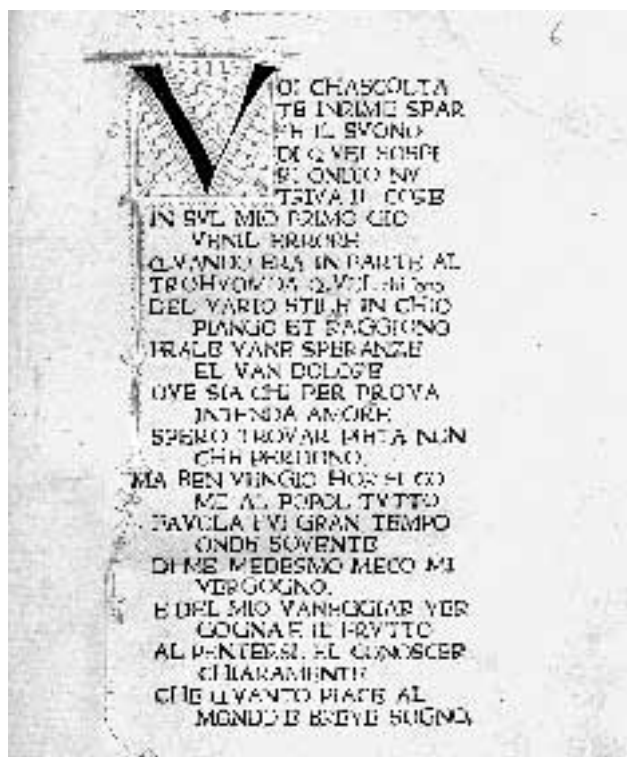 VOI CHASCOLTA
TE INRIME SPAR
SE IL SVONO
DI QVEI SOSPI
RI ONDIO NV
TRIVA IL CORE
IN SVL MIO PRIMO GIO
VENIL ERRORE
QVANDO ERA IN PARTE AL
TRO HVOM DA QVEL chi sono
DEL VARIO STILE IN CHIO
PIANGO ET RAGGIONO
FRALE VANE SPERANZE
EL VAN DOLORE
OVE SIA CHI PER PROVA
INTENDA AMORE
SPERO TROVAR PIETA NON
CHE PERDONO.
MA BEN VEGGIO HOR SI CO
ME AL POPOL TVTTO
FAVOLA FVI GRAN TEMPO
ONDE SOVENTE
DI ME MEDESMO MECO MI
VERGOGNO.
E DEL MIO VANEGGIAR VER
GOGNA E IL FRVTTO
AL PENTERSI. EL CONOSCER
CHIARAMENTE
CHE QVANTO PIACE AL
MONDO E BREVE SOGNO.
6